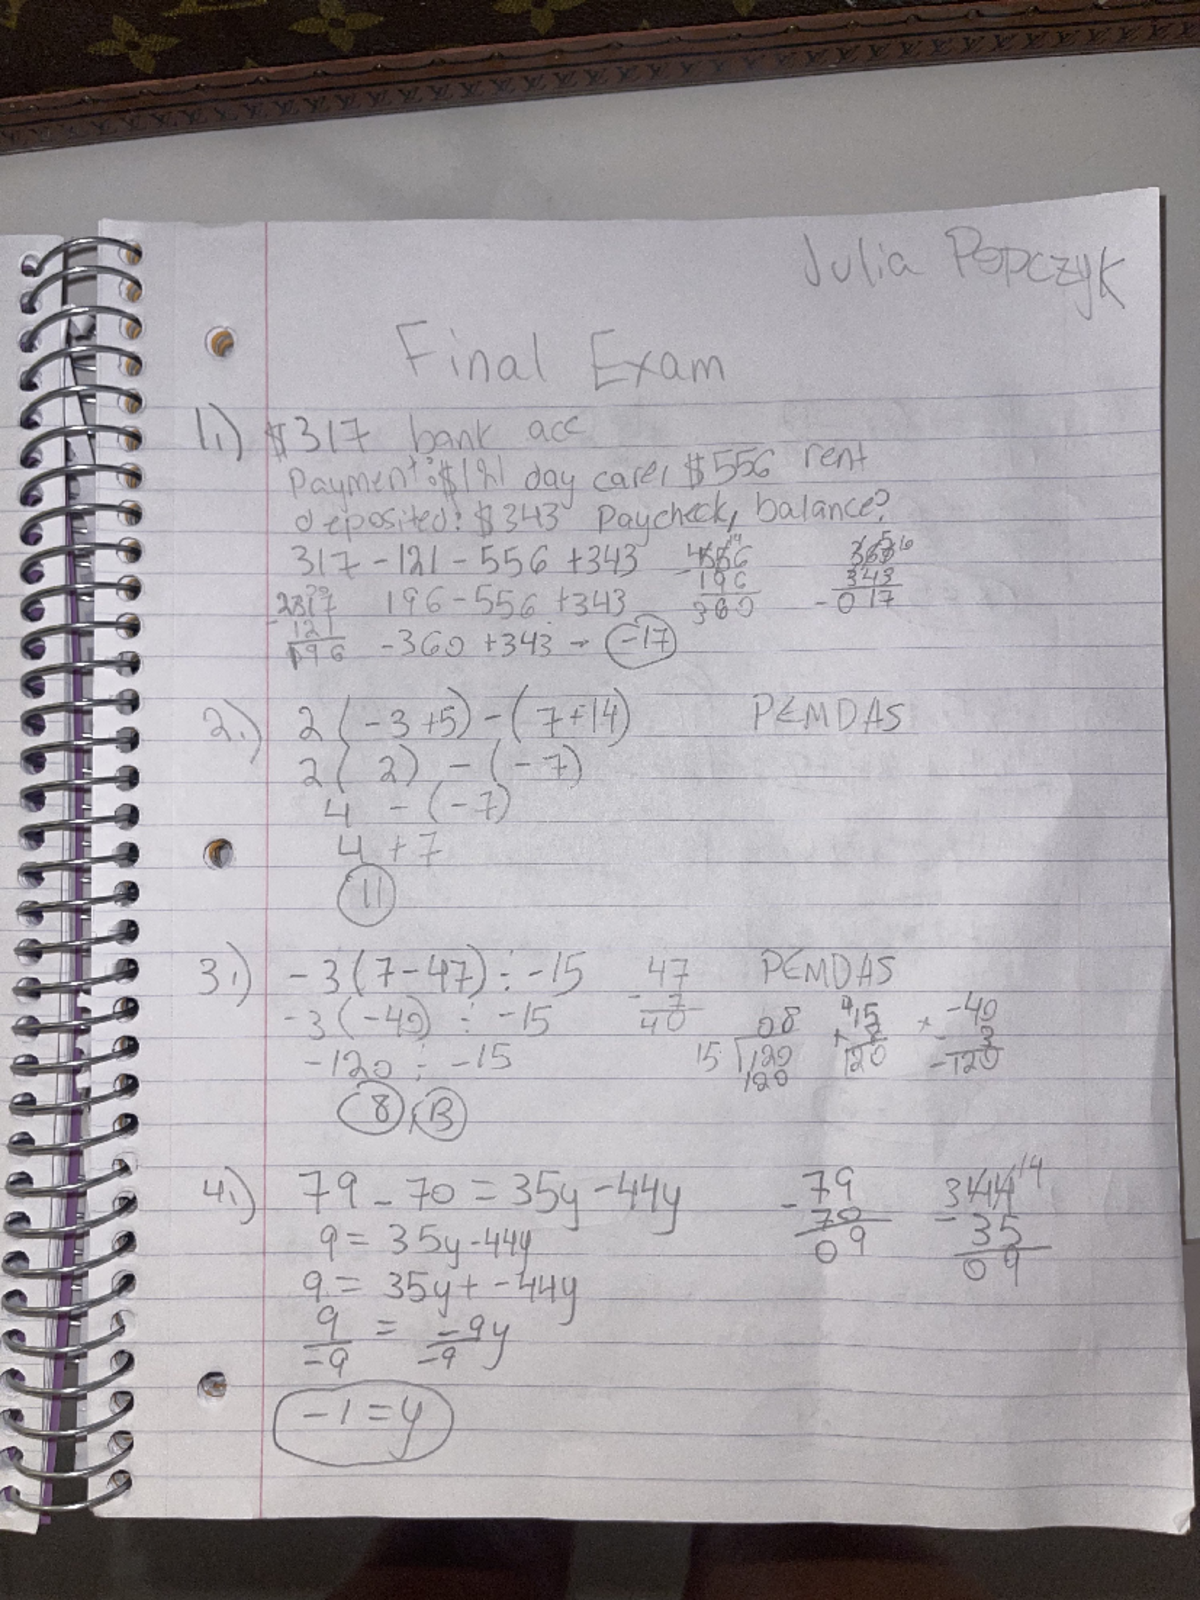 Julia Popczyk
Final Exam
1.) $317 bank acc
Payment: $121 day care, $556 rent
deposited: $343 Paycheck, balance?
317 - 121 - 556 + 343
196 - 556 + 343
-360 + 343 → -17
121
196
196
360
343
- 017
2.) 2(-3+5) - (7+14) PEMDAS
2( 2) - (-7)
4 - (-7)
4 + 7
11
3.) -3(7-47) ÷ -15 PEMDAS
-3(-40) ÷ -15
-120 ÷ -15
8, B
47
- 7
40
08
15 120
120
15
120
× -40
3
-120
4.) 79 - 70 = 35y - 44y
9 = 35y - 44y
9 = 35y + -44y
9 = -9y
-9 -9
-1 = y
- 79
70
09
- 35
09